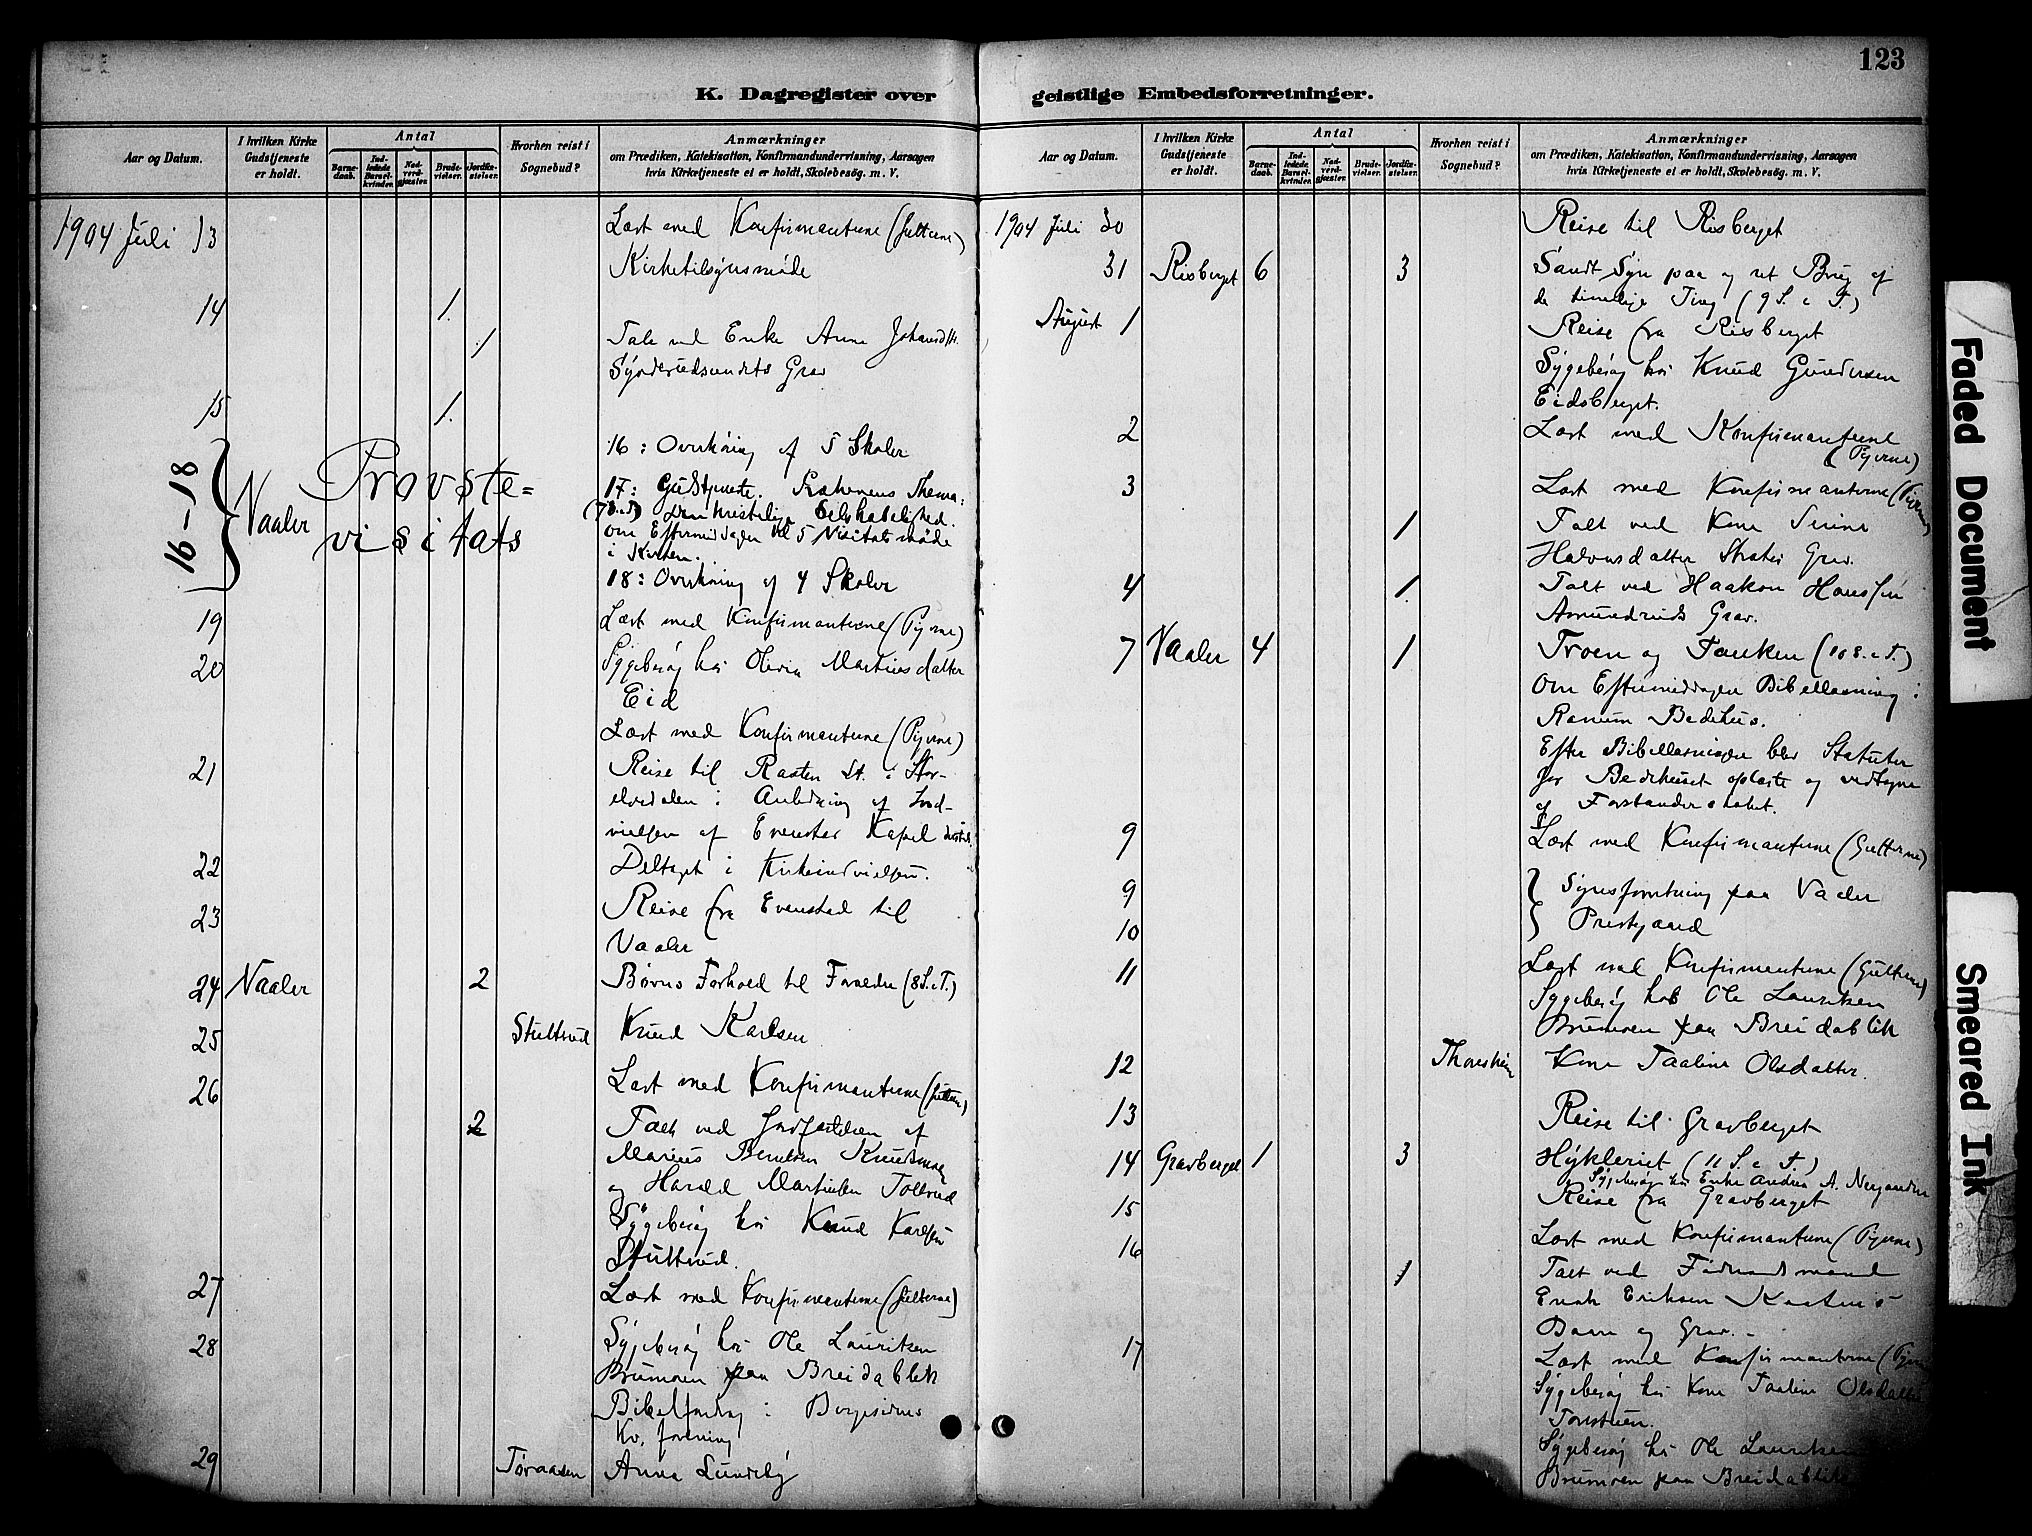 123
K. Dagregister over geistlige Embedsforretninger.
Aar og Datum.
I hvilken Kirke Gudstjeneste er holdt.
Antal
Barne-daab.
Ind-ledede Barsel-kvinder.
Nad-verd-gjæster.
Brude-vielser.
Jordfæ-stelser.
Hvorhen reist i Sognebud?
Anmærkninger
om Prædiken, Katekisation, Konfirmandundervisning, Aarsagen
hvis Kirketjeneste ei er holdt, Skolebesøg. m. V.
1904 Juli 13 Læst med Konfirmanterne (Gutterne)
Kirketilsynsmøde
14 1.
1 Tale ved Enke Anne Johansdtr.
Grav
15 1.
16-18 Vaaler Provste=
visitats
16: Overhøring af 5 Skoler
17: Gudstjeneste. Thema:
Den kristelige Selvkabelighed.
om Eftermiddagen kl 5 Visitatsmøde
i Kirken.
18: Overhøring af 4 Skoler
19 Læst med Konfirmanterne (Pigerne)
20 Sygebesøg hos Olevia Martinsdatter
Eid
Læst med Konfirmanterne (Pigerne)
21 Reise til Rasten St. i Stor-
elvedalen i Anledning af Ind-
vielsen af Evenstad Kapel
22 Deltaget i Kirkeindvielsen.
23 Reise fra Evenstad til
Vaaler
24 Vaaler 2 Børns Forhold til Forældre (8 S. e T.)
25 Stultrud Knud Karlsen
26 Læst med Konfirmanterne (Gutterne)
2 Talt ved Jordfæstelsen af
Marius Berntsen
og Harald Martinsen
Sygebesøg hos Knud Karlsen
Stultrud.
27 Læst med Konfirmanterne (Gutterne)
28 Sygebesøg hos Ole Lauritsen
Brumoen paa Breidablik
Bibelforedrag i
Kv. forening
29 Toraasen Anna Lundeby
Aar og Datum.
I hvilken Kirke Gudstjeneste er holdt.
Antal
Barne-daab.
Ind-ledede Barsel-kvinder.
Nad-verd-gjæster.
Brude-vielser.
Jordfæ-stelser.
Hvorhen reist i Sognebud?
Anmærkninger
om Prædiken, Katekisation, Konfirmandundervisning, Aarsagen
hvis Kirketjeneste ei er holdt, Skolebesøg. m. V.
1904 Juli 30 Reise til Risberget
31 Risberget 6 3 Sandt Syn paa og ret Brug af
de timelige Ting (9 S. e T.)
August 1 Reise fra Risberget
Sygebesøg hos Knud Gundersen
Eidsberget.
2 Læst med Konfirmanterne
(Pigerne)
3 Læst med Konfirmanterne (Pigerne)
1 Talt ved Kone
Halvorsdatter Grav.
4 1 Talt ved Haakon Hansen
Amundruds Grav.
7 Vaaler 4 1 Troen og Tanken (10 S. e T.)
Om Eftermiddagen Bibellæsning i
Ranum Bedehus.
Efter Bibellæsningen blev Statuter
for Bedehuset oplæste og vedtagne
af Forstanderskabet.
9 Læst med Konfirmanterne (Gutterne)
9 Synsforretning paa Vaaler
10 Prestgaard
11 Læst med Konfirmanterne (Gutterne)
Sygebesøg hos Ole Lauritsen
Brumoen paa Breidablik
12 Kone Taaline Olsdatter.
13 Reise til Gravberget
14 Gravberget 1 3 Hykleriet (11 S. e T.)
Sygebesøg hos Enke Andrea A.
15 Reise fra Gravberget
16 Læst med Konfirmanterne (Pigerne)
1 Talt ved Føderaadsmand
Eriksen
Baare og Grav.
17 Læst med Konfirmanterne
Sygebesøg hos Kone Taaline Olsdatter
Sygebesøg hos Ole Lauritsen
Brumoen paa Breidablik
Faded Document
Smeared Ink